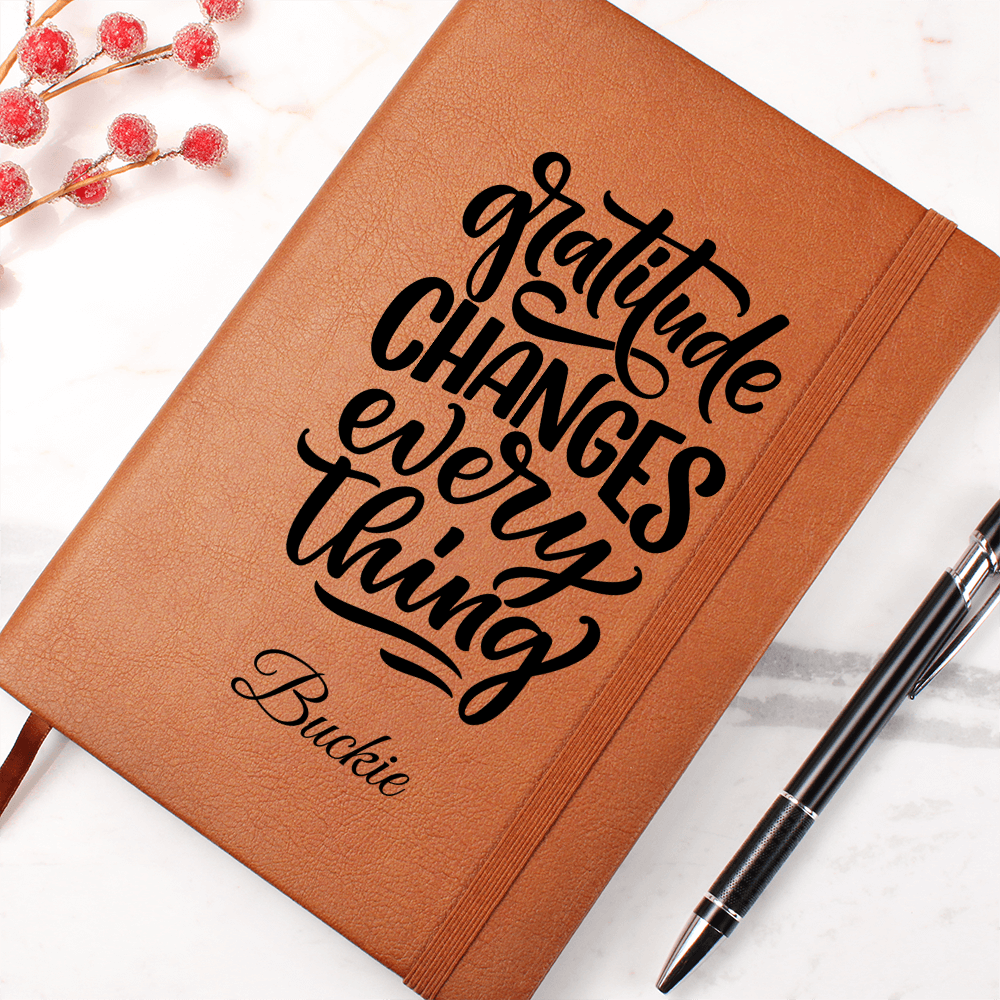 gratitude
CHANGES
every
thing
Buckie